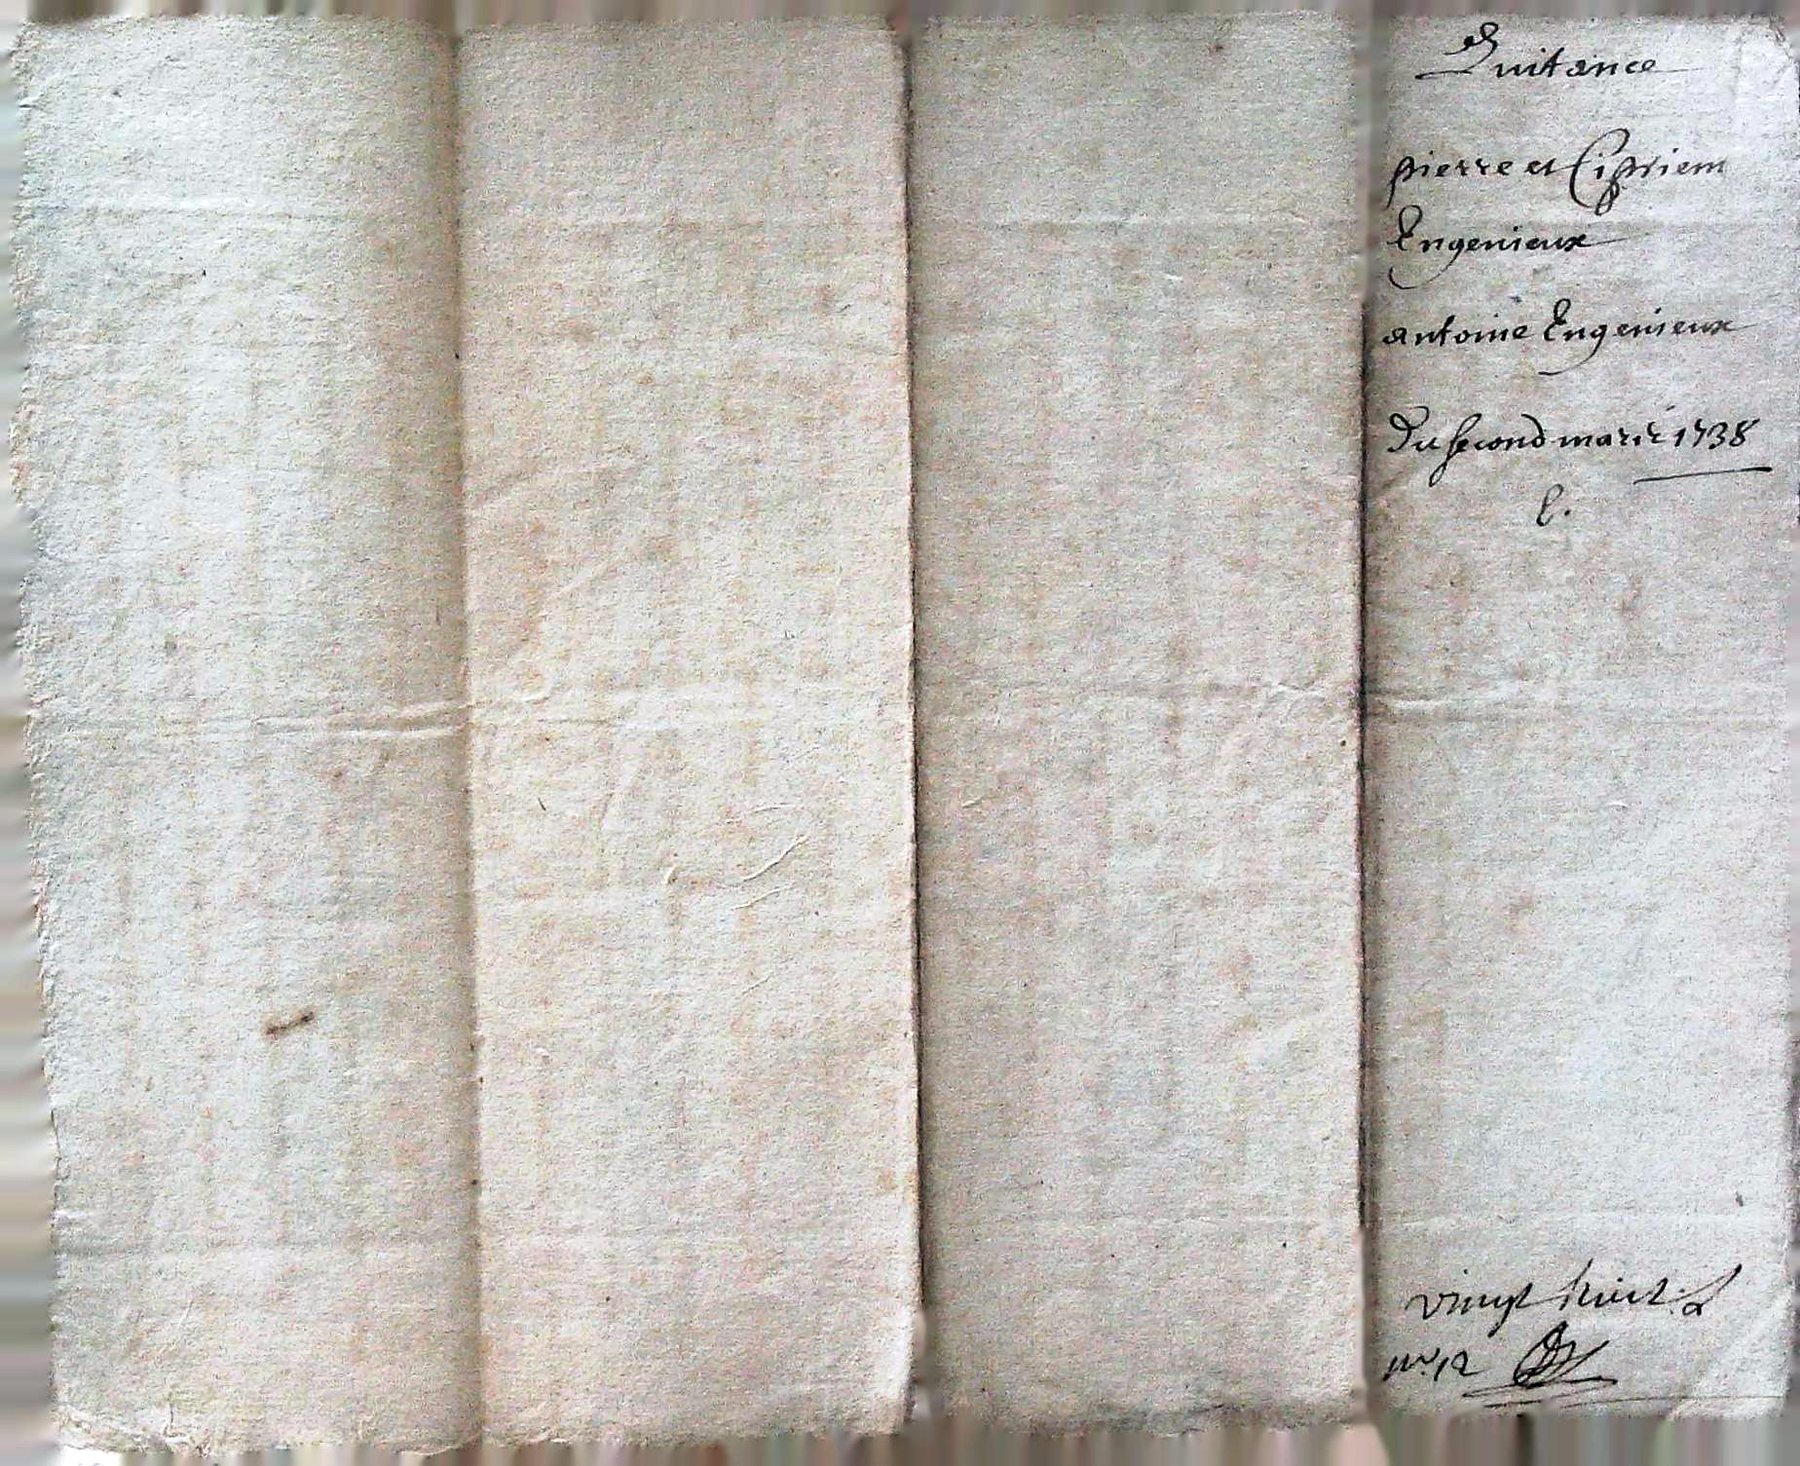 Quitance
pierre et Cipriem
Engenieux
antoine Engenieux
Du second mars 1738
vingt huict